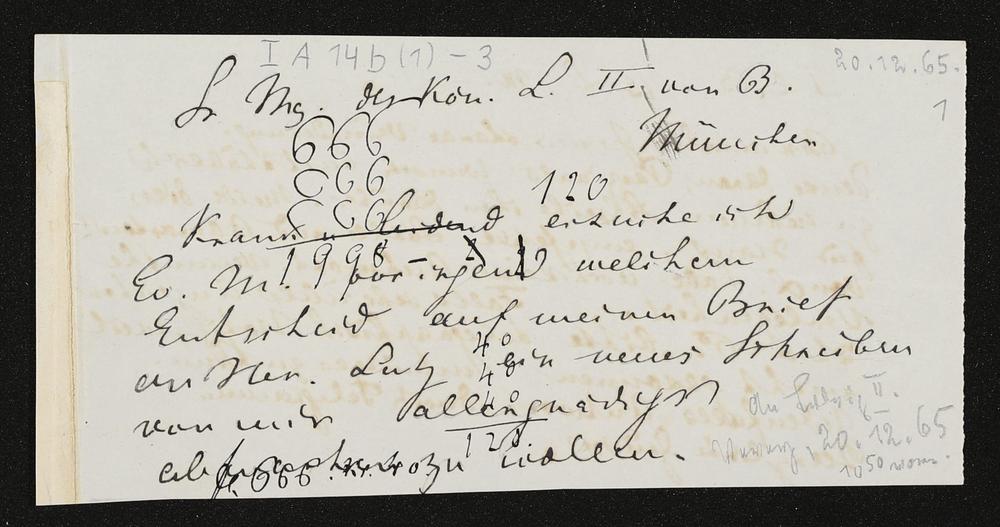 I A 14b (1) - 3
20.12.65.
1
Sr Mg. der Kön. L. II. von B.
München
666
666
666
120
Krank u. leidend ersuche ich
1998 -
Ew. M. vor irgend welchem
Entscheid auf meinen Brief
40
an Hrn. Lutz ein neues Schreiben
40
40
von mir allergnädigst
120
abwarten zu wollen.
666.
An Ludwig II.
20.12.65
10 50 vorm.